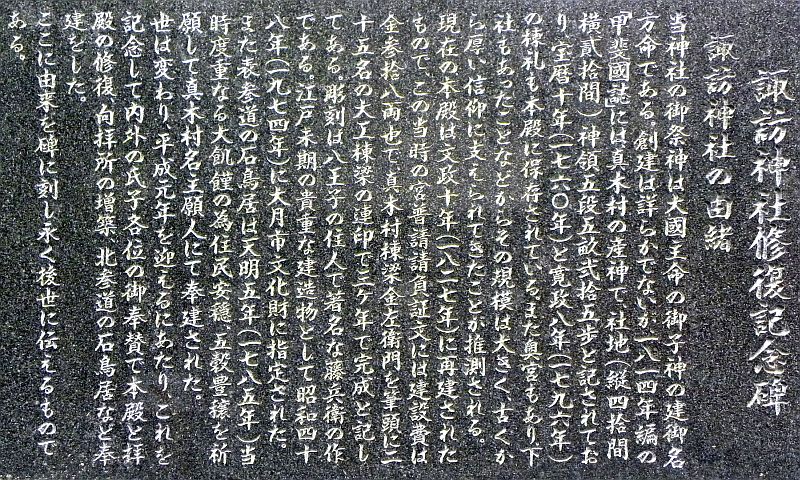 諏訪神社修復記念碑
諏訪神社の由緒
当神社の御祭神は大國主命の御子神の建御名
方命である。創建は詳らかでないが一八一四年編の
『甲斐國誌』には、真木村の産神で、社地(縦四拾間
横貳拾間)神領五段五畝弐拾五歩と記されてお
り、宝暦十年(一七六〇年)と寛政八年(一七九六年)
の棟札も本殿に保存されている。また奥宮もあり下
社もあったことなどからその規模は大きく、古くか
ら厚い信仰に支えられてきたことが推測される。
現在の本殿は文政十年(一八二七年)に再建された
もので、この当時の宮普請請負証文には建設費は
金参拾八両也で、真木村棟梁金左衛門を筆頭に二
十五名の大工棟梁の連印で三ヶ年で完成と記し
てある。彫刻は八王子の住人で、著名な藤兵衛の作
である。江戸末期の貴重な建造物として昭和四十
八年(一九七四年)に大月市文化財に指定された。
また表参道の石鳥居は天明五年(一七八五年)当
時度重なる大飢饉の為住民安穏、五穀豊穣を祈
願して真木村名主願人にて奉建された。
世は変わり、平成元年を迎えるにあたり、これを
記念して内外の氏子各位の御奉賛で本殿と拝
殿の修復、向拝所の増築、北参道の石鳥居など奉
建をした。
ここに由来を碑に刻し永く後世に伝えるもので
ある。